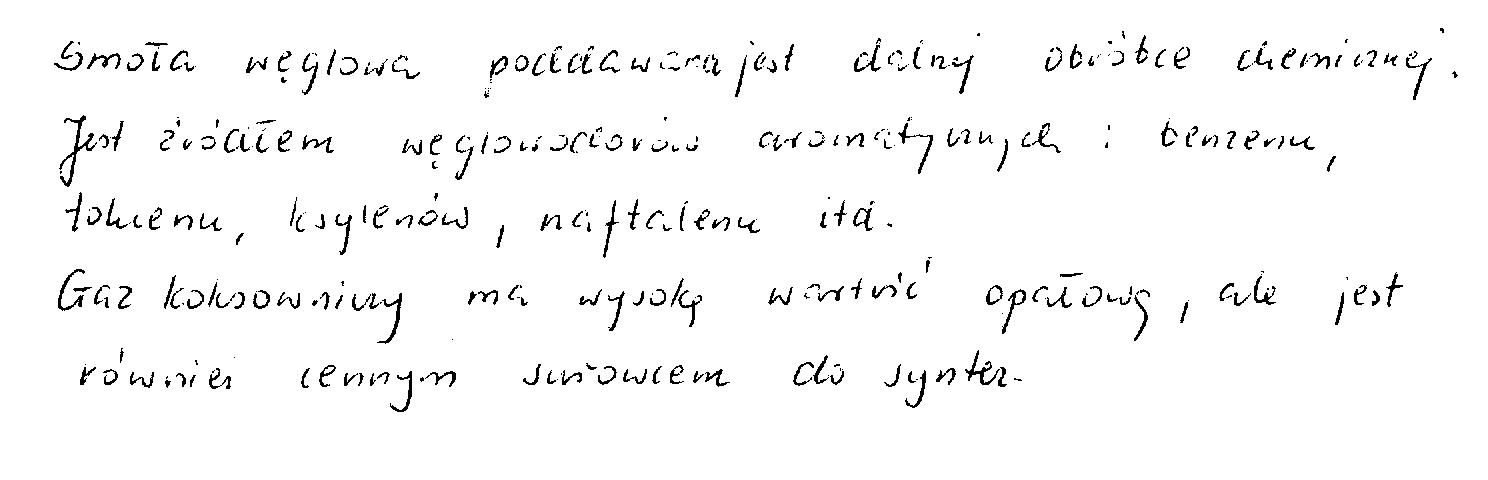 Smoła węglowa poddawana jest dalszej obróbce chemicznej.
Jest źródłem węglowodorów aromatycznych : benzenu,
toluenu, ksylenów, naftalenu itd.
Gaz koksowniczy ma wysoką wartość opałową, ale jest
również cennym surowcem do syntez.